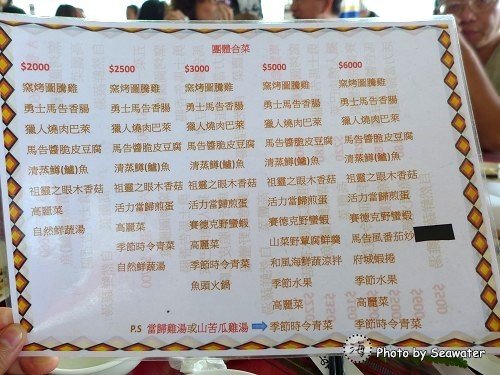 團體合菜
$2000
窯烤圖騰雞
勇士馬告香腸
獵人燒肉巴萊
馬告醬脆皮豆腐
清蒸鱒(鱸)魚
祖靈之眼木香菇
高麗菜
自然鮮蔬湯
$2500
窯烤圖騰雞
勇士馬告香腸
獵人燒肉巴萊
馬告醬脆皮豆腐
清蒸鱒(鱸)魚
祖靈之眼木香菇
活力當歸煎蛋
高麗菜
季節時令青菜
自然鮮蔬湯
$3000
窯烤圖騰雞
勇士馬告香腸
獵人燒肉巴萊
馬告醬脆皮豆腐
清蒸鱒(鱸)魚
祖靈之眼木香菇
活力當歸煎蛋
賽德克野蠻蝦
高麗菜
季節時令青菜
魚頭火鍋
$5000
窯烤圖騰雞
勇士馬告香腸
獵人燒肉巴萊
馬告醬脆皮豆腐
清蒸鱒(鱸)魚
祖靈之眼木香菇
活力當歸煎蛋
賽德克野蠻蝦
山菜野蕈腐鮮羹
和風海鮮蔬涼拌
季節水果
高麗菜
季節時令青菜
$6000
窯烤圖騰雞
勇士馬告香腸
獵人燒肉巴萊
馬告醬脆皮豆腐
清蒸鱒(鱸)魚
祖靈之眼木香菇
活力當歸煎蛋
賽德克野蠻蝦
馬告風番茄炒
府城蝦捲
季節水果
高麗菜
季節時令青菜
P.S 當歸雞湯或山苦瓜雞湯
海
Photo by Seawater